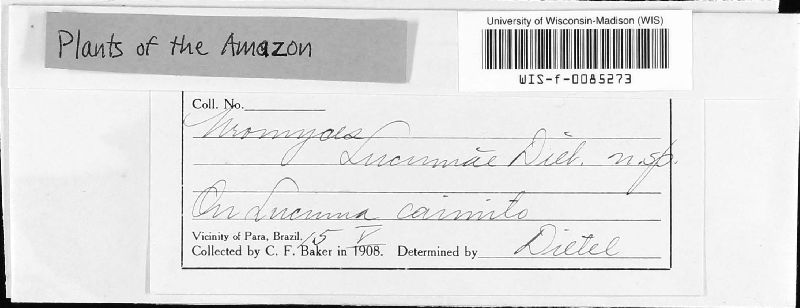 Plants of the Amazon
University of Wisconsin-Madison (WIS)
WIS-f-0085273
Coll. No.
Uromyces
Lucumae Diet. n.sp.
On Lucuma caimito
Vicinity of Para, Brazil, 15 V
Collected by C. F. Baker in 1908. Determined by Dietel